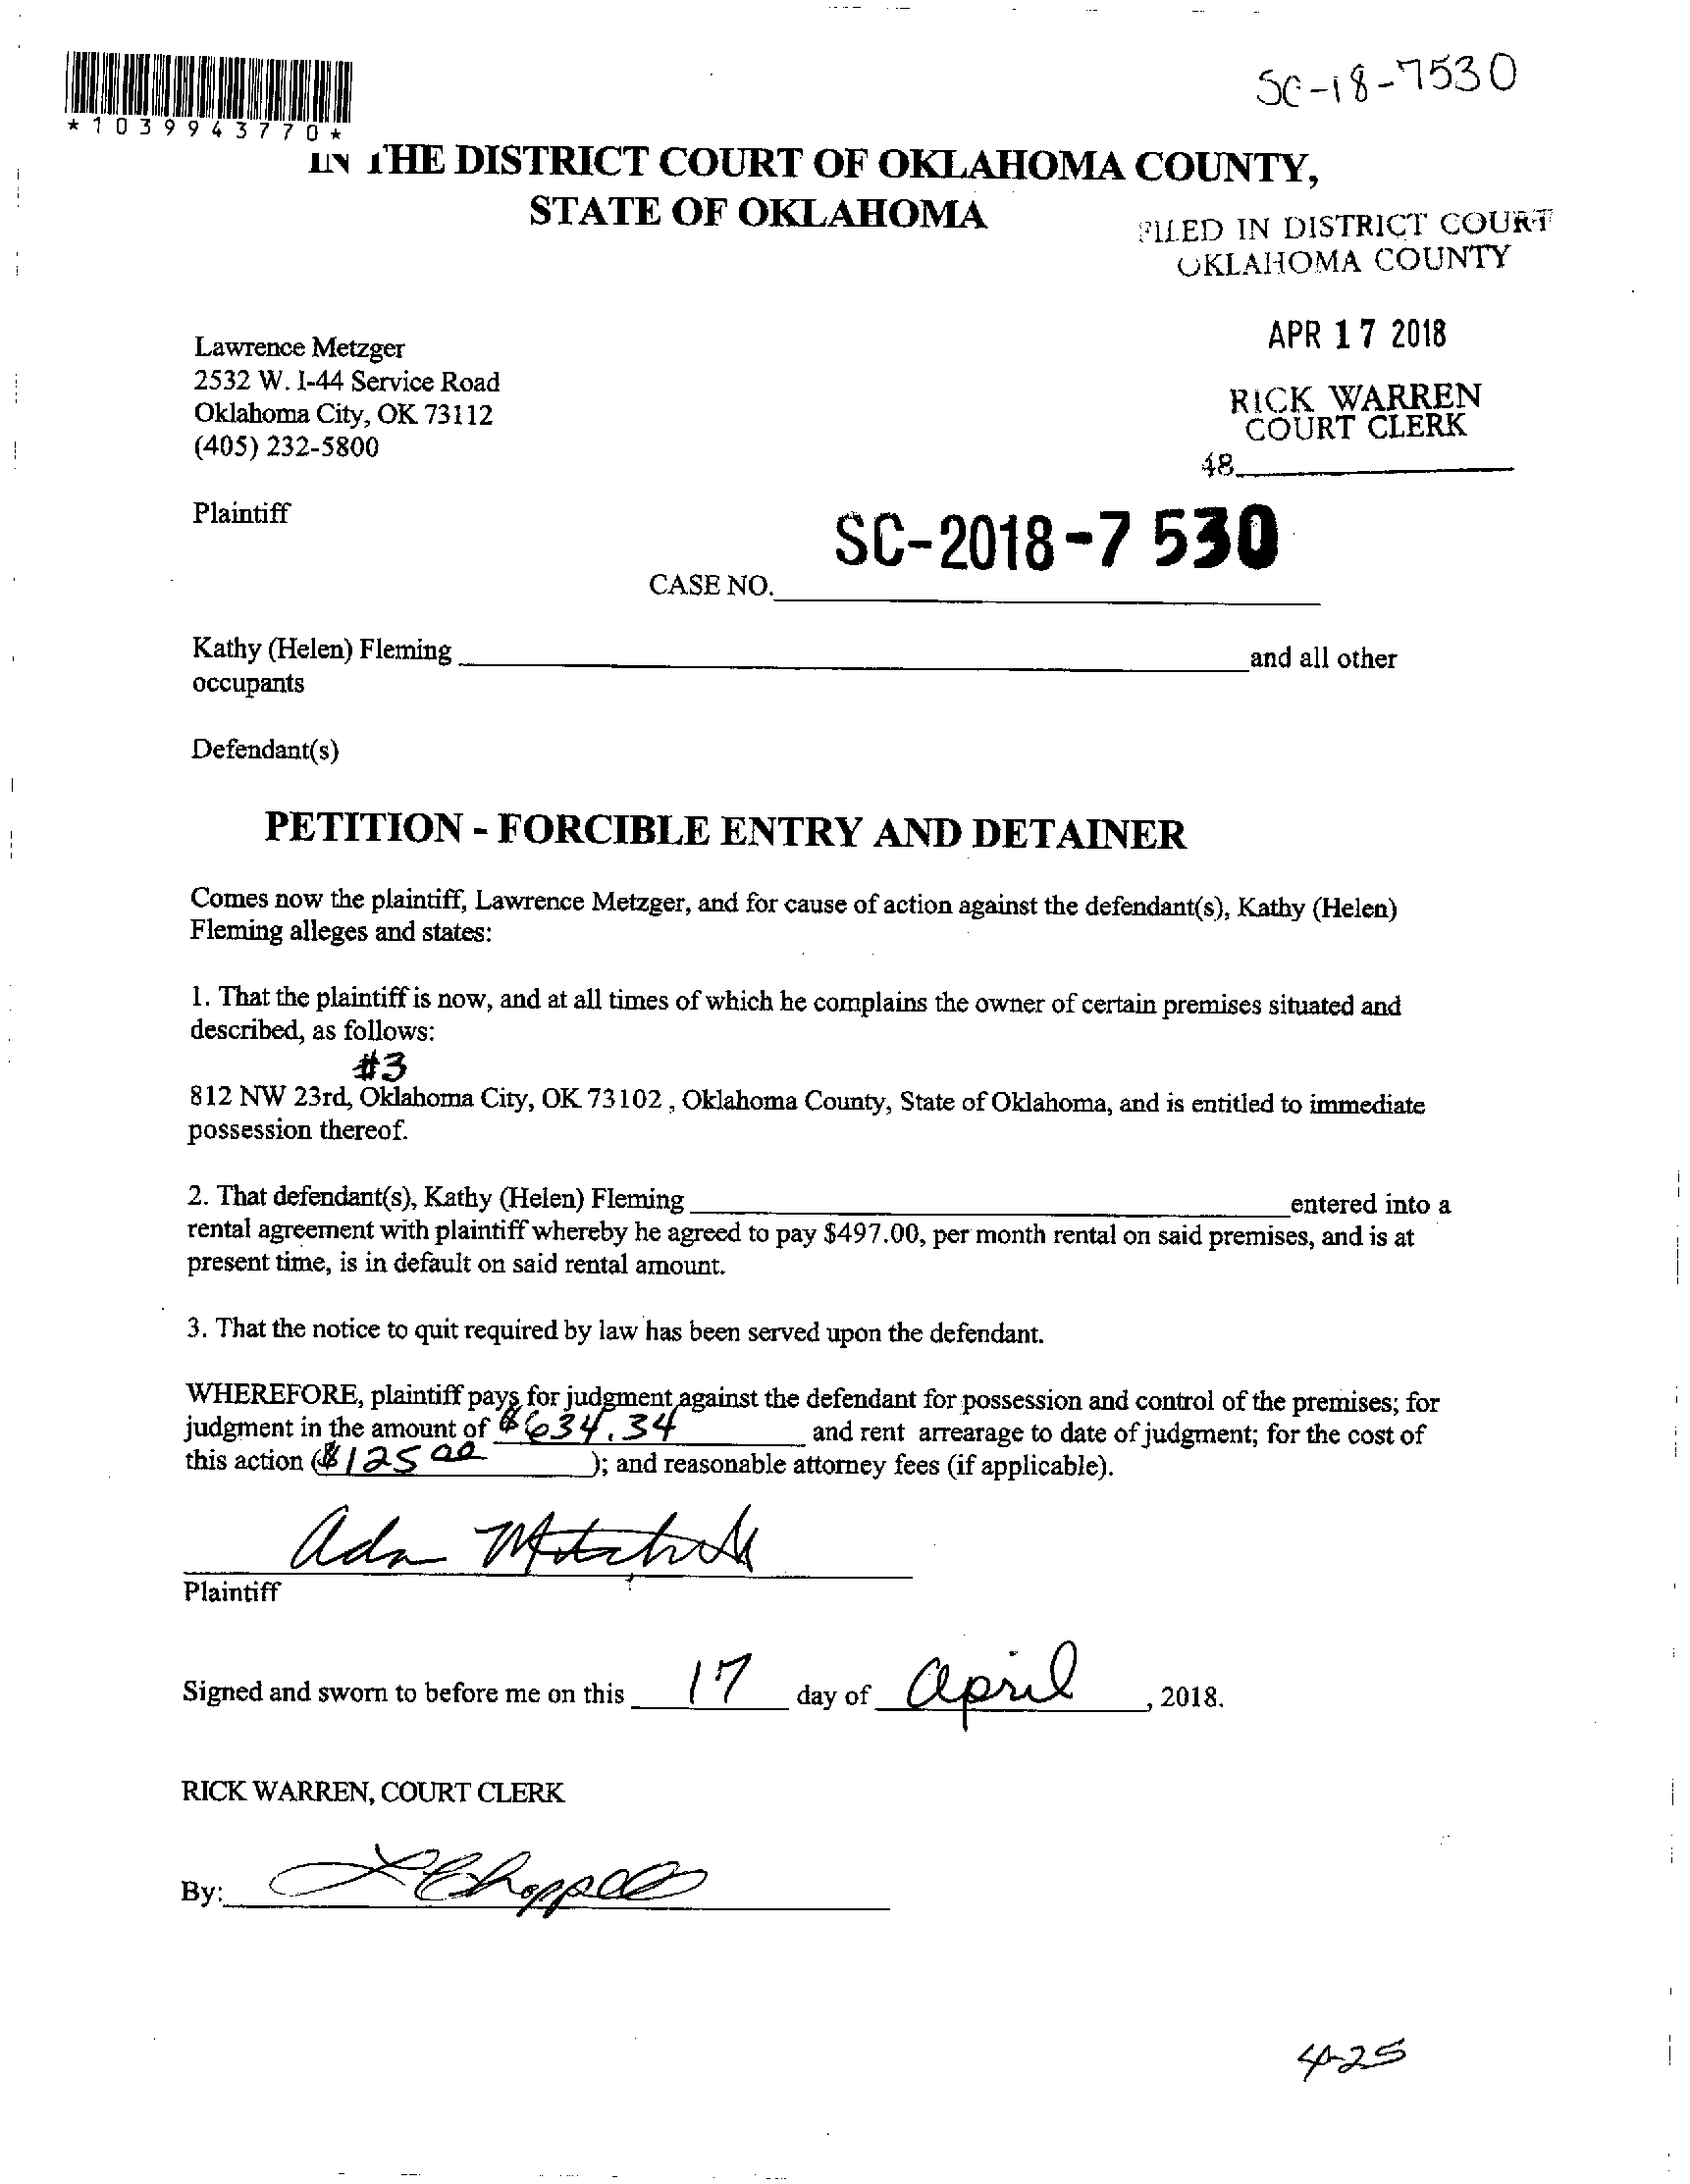 SC-18-7530
*1039943770*
IN THE DISTRICT COURT OF OKLAHOMA COUNTY,
STATE OF OKLAHOMA
FILED IN DISTRICT COURT
OKLAHOMA COUNTY
APR 17 2018
RICK WARREN
COURT CLERK
48
Lawrence Metzger
2532 W. I-44 Service Road
Oklahoma City, OK 73112
(405) 232-5800
Plaintiff
SC-2018-7530
CASE NO.
Kathy (Helen) Fleming and all other
occupants
Defendant(s)
PETITION - FORCIBLE ENTRY AND DETAINER
Comes now the plaintiff, Lawrence Metzger, and for cause of action against the defendant(s), Kathy (Helen)
Fleming alleges and states:
1. That the plaintiff is now, and at all times of which he complains the owner of certain premises situated and
described, as follows:
#3
812 NW 23rd, Oklahoma City, OK 73102 , Oklahoma County, State of Oklahoma, and is entitled to immediate
possession thereof.
2. That defendant(s), Kathy (Helen) Fleming entered into a
rental agreement with plaintiff whereby he agreed to pay $497.00, per month rental on said premises, and is at
present time, is in default on said rental amount.
3. That the notice to quit required by law has been served upon the defendant.
WHEREFORE, plaintiff pays for judgment against the defendant for possession and control of the premises; for
judgment in the amount of $634.34 and rent arrearage to date of judgment; for the cost of
this action ($125 00); and reasonable attorney fees (if applicable).
Plaintiff
Signed and sworn to before me on this 17 day of April, 2018.
RICK WARREN, COURT CLERK
By:
4-25